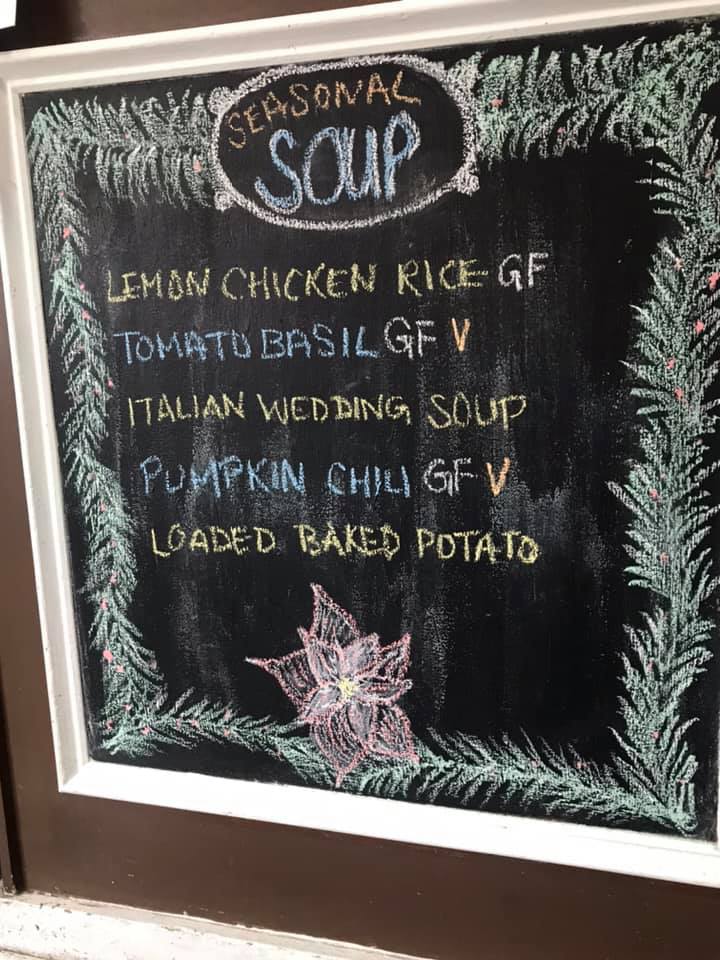 SEASONAL
SOUP
LEMON CHICKEN RICE GF
TOMATO BASIL GF V
ITALIAN WEDDING SOUP
PUMPKIN CHILI GF V
LOADED BAKED POTATO